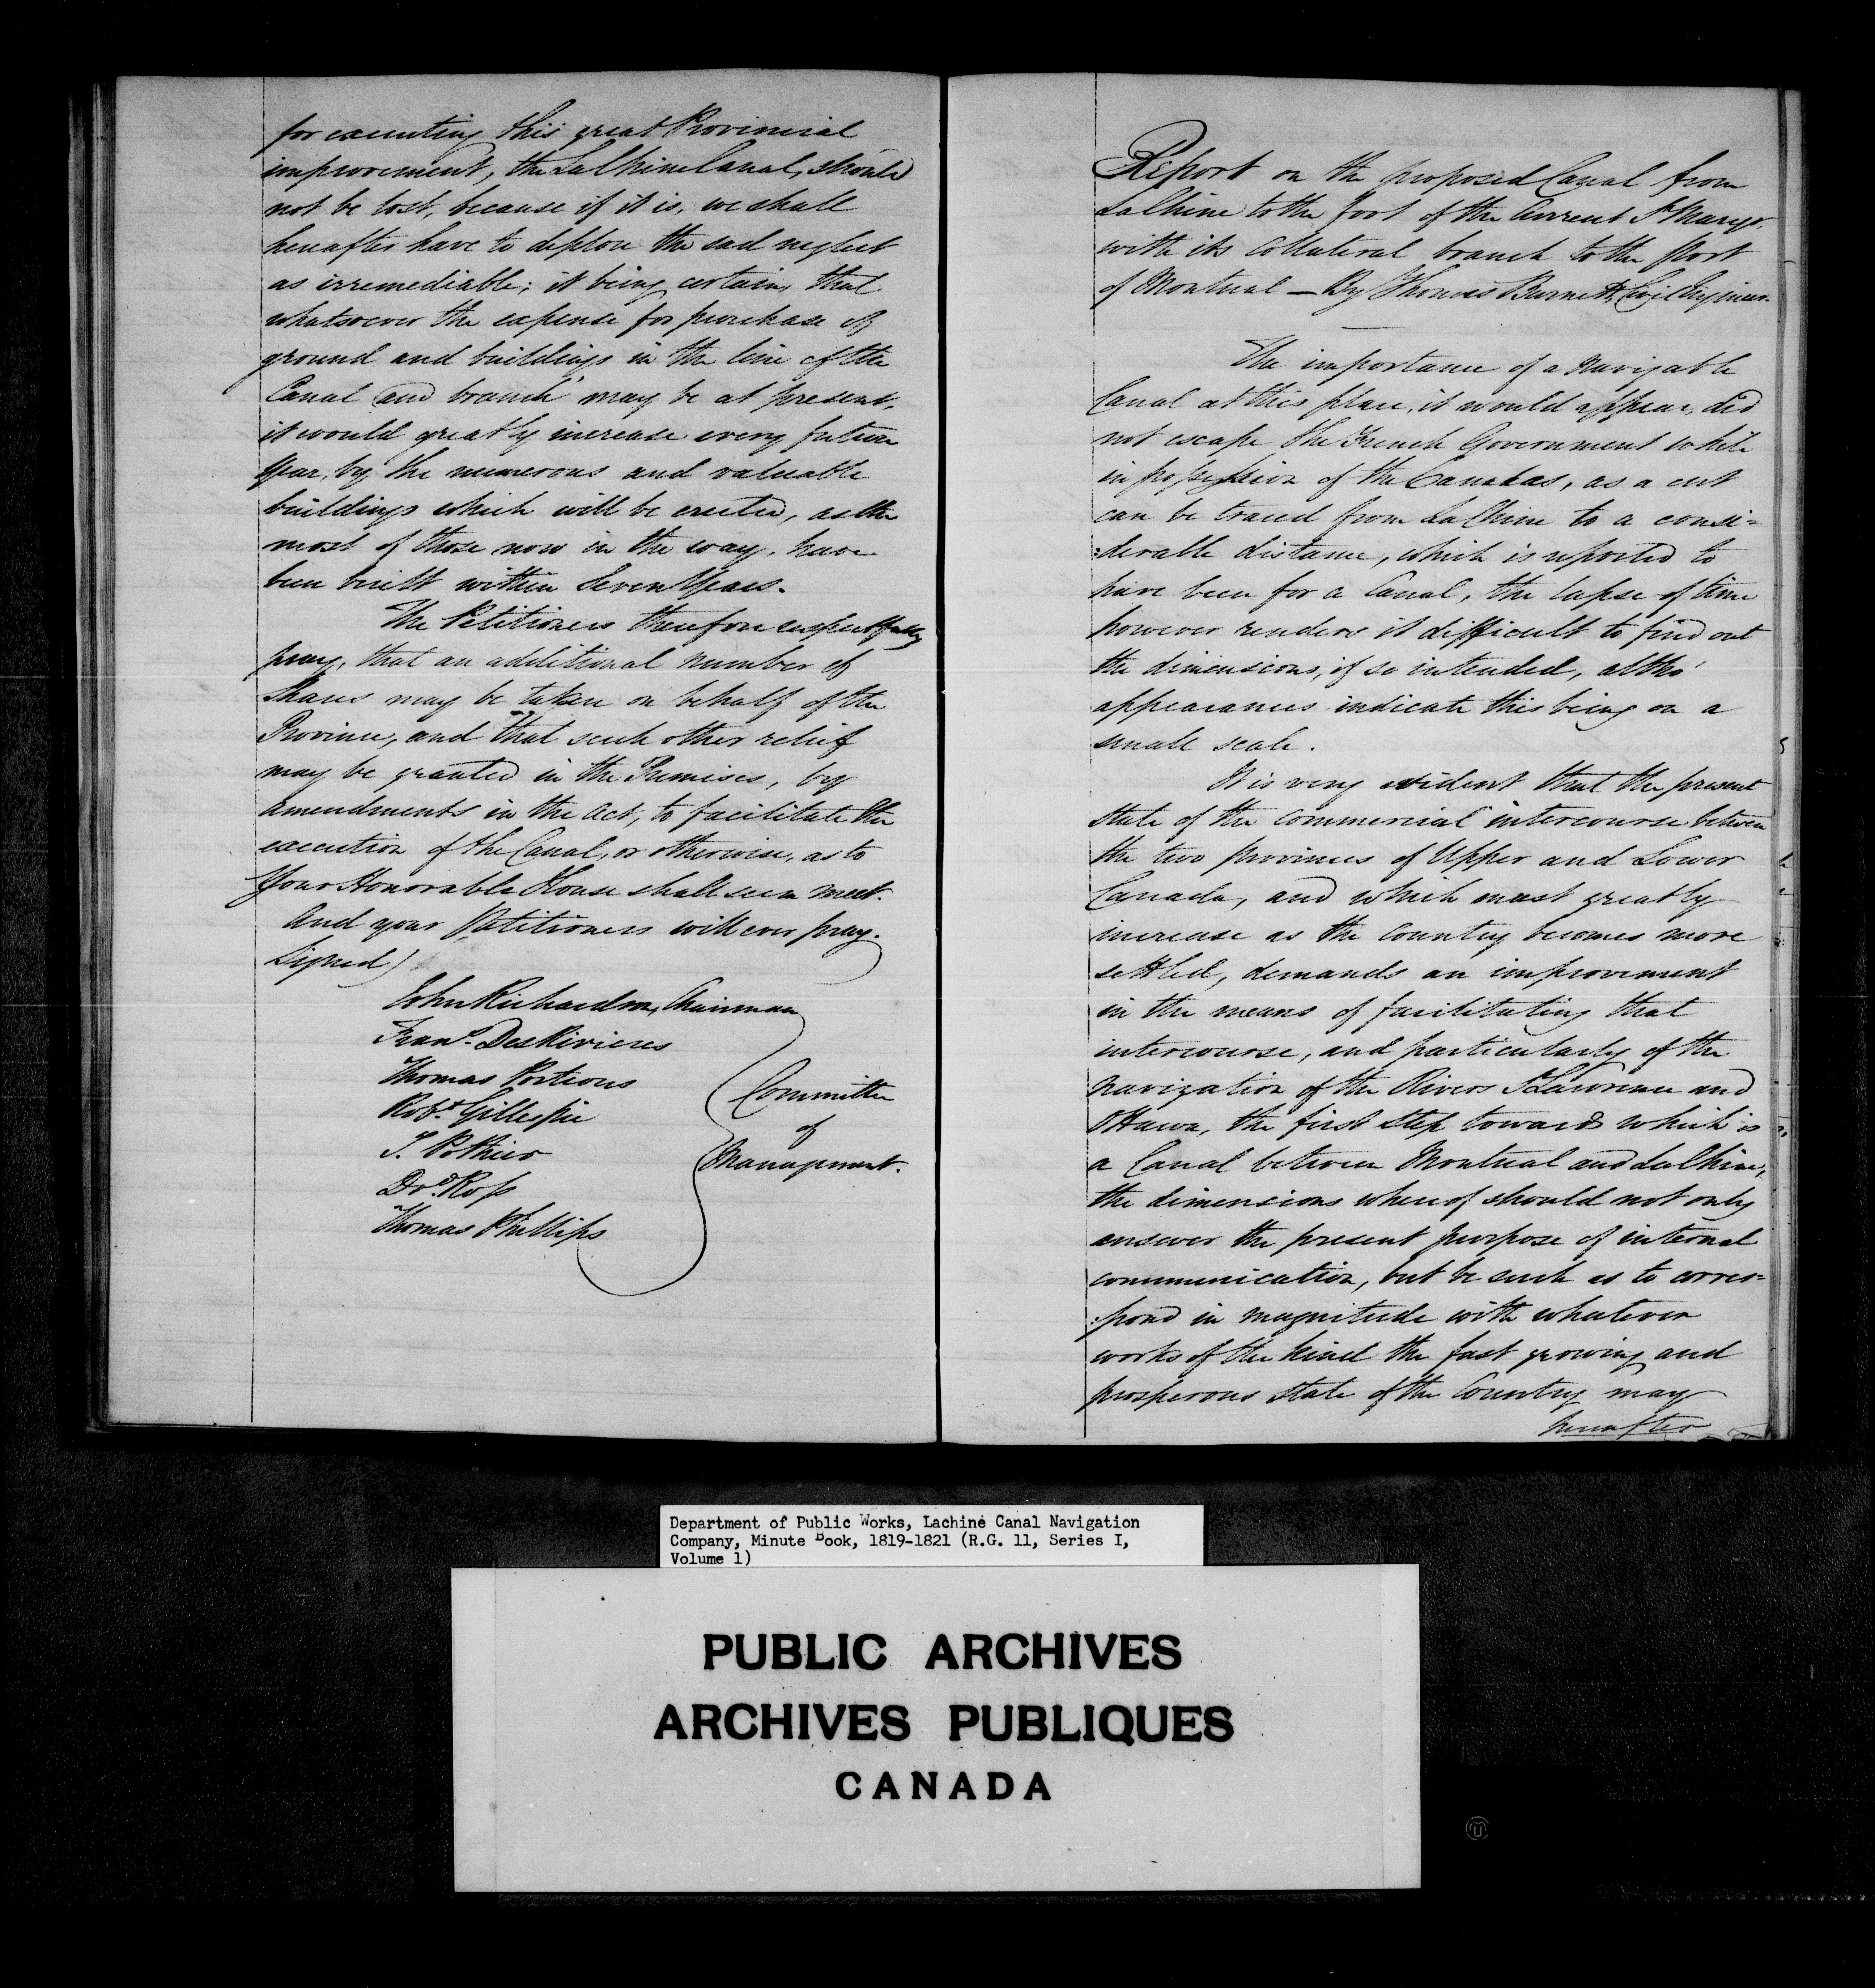 for executing this great Provincial
improvement, the La Chine Canal, should
not be lost, because if it is, we shall
hereafter have to deplore the sad neglect
as irremediable; it being certain, that
whatsoever the expense for purchase of
ground and buildings in the line of the
Canal and branch may be at present,
it would greatly increase every future
Year, by the numerous and valuable
buildings which will be erected, as the
most of those now in the way, have
been built within Seven Years.
The Petitioners therefore respectfully
pray, that an additional number of
Shares may be taken on behalf of the
Province, and that such other relief
may be granted in the Premises, by
amendments in the Act, to facilitate the
execution of the Canal, or otherwise, as to
Your Honorable House shall seem meet.
And your Petitioners will ever pray.
Signed)
John Richardson, Chairman
Frans. DesRivieres
Thomas Porteous
Robt. Gillespie
T. Pothier
Dvd. Ross
Thomas Phillips
Committee
of
Management.
Report on the proposed Canal from
La Chine to the foot of the Current St Marys,
with its Collateral branch to the Port
of Montreal — By Thomas Burnett, Civil Engineer.
The importance of a Navigable
Canal at this place, it would appear, did
not escape the French Government while
in possession of the Canadas, as a cut
can be traced from La Chine to a consi=
:derable distance, which is reported to
have been for a Canal, the lapse of time
however renders it difficult to find out
the dimensions, if so intended, altho'
appearances indicate this being on a
small scale.
It is very evident that the present
State of the Commercial intercourse between
the two provinces of Upper and Lower
Canada, and which must greatly
increase as the Country becomes more
settled, demands an improvement
in the means of facilitating that
intercourse, and particularly of the
navigation of the Rivers St Lawrence and
Ottawa, the first step towards which is
a Canal between Montreal and La Chine,
the dimensions whereof should not only
answer the present purpose of internal
communication, but be such as to corres=
:pond in magnitude with whatever
works of the kind the fast growing and
prosperous State of the Country may
hereafter
Department of Public Works, Lachine Canal Navigation
Company, Minute Book, 1819-1821 (R.G. 11, Series I,
Volume 1)
PUBLIC ARCHIVES
ARCHIVES PUBLIQUES
CANADA